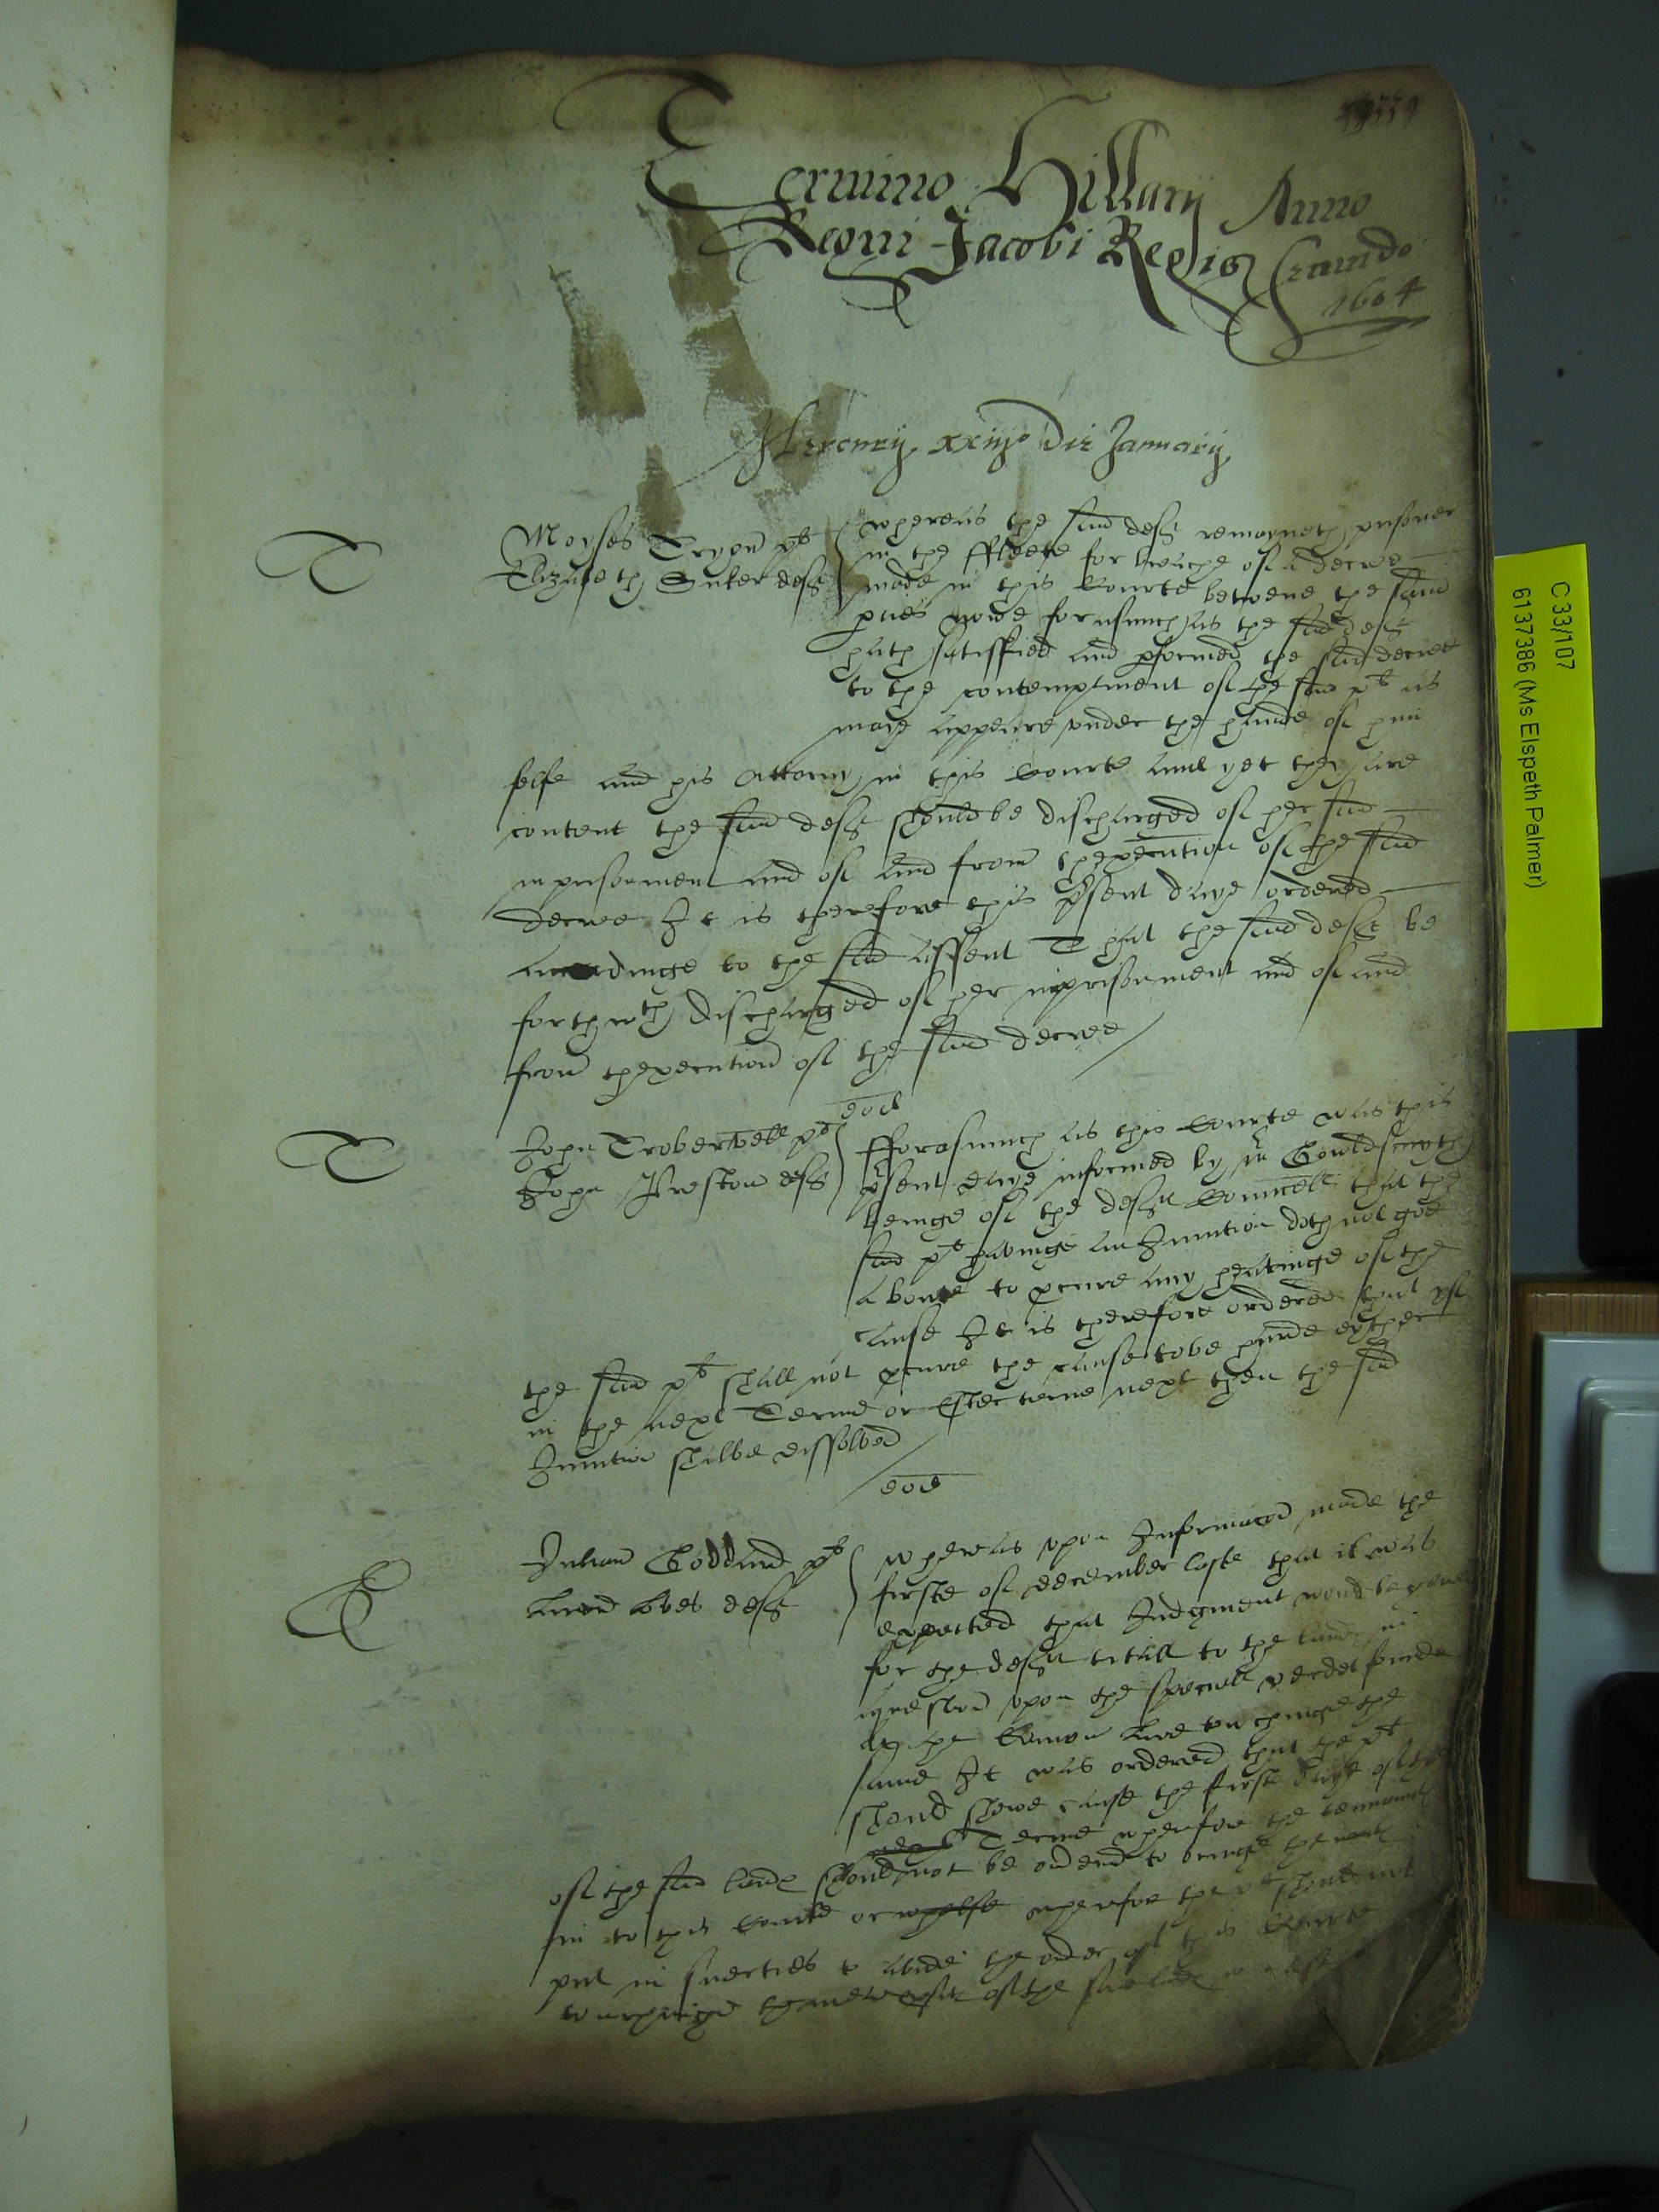 559
Termino Hillarij Anno
Regni Jacobi Regis Secundo
1604
Mercurij xxiijo die Januarij
T
Moyses Tryon plt
Elizabeth def
whereas the said deft remayneth prisoner
in the Fleete for breache of a decree
made in this Courte betweene the said
pties nowe forasmuch as the said deft
hath satisfied and pformed the said decree
to the contentment of the said plt as
maye appeare under the hande of him
selfe and his Attorny in this Courte and yet they are
content the said deft should be discharged of her said
inprisonment and of and from thexecution of the said
decree It is therefore this psent daye ordered
accordinge to the said assent That the said deft be
forthwth discharged of her inprisonment and of and
from thexecution of the said decree
eod
T
John plt
John Preston deft
Fforasmuch as this Courte was this
psent daye informed by mr Gouldsmyth
beinge of the deftes Councell that the
said plt havinge an Iniunction doth not goe
aboute to pcure any hearinge of the
cause It is therefore ordered that yf
the said plt shall not pcure the cause to be hearde eyther
in the next Terme or Ester terme next then the said
Iniunction shalbe dissolved
eod
Julian Goddard plt
deft
whereas upon Informacon made the
firste of December laste that it was
expected that Judgment would be geven
for the deftes titall to the landes in
question upon the speciall verdet founde
at the Comon Lawe the
same It was ordered that the plt
should shewe cause the firste daye of the
next Terme wherefore the tennantes
of the said landes should not be ordered to bringe the rentes
in to this Courte or whelse wherefore the plt should not
put in suerties to abide the order of this Courte
of the said landes
C 33/107
6137386 (Ms Elspeth Palmer)